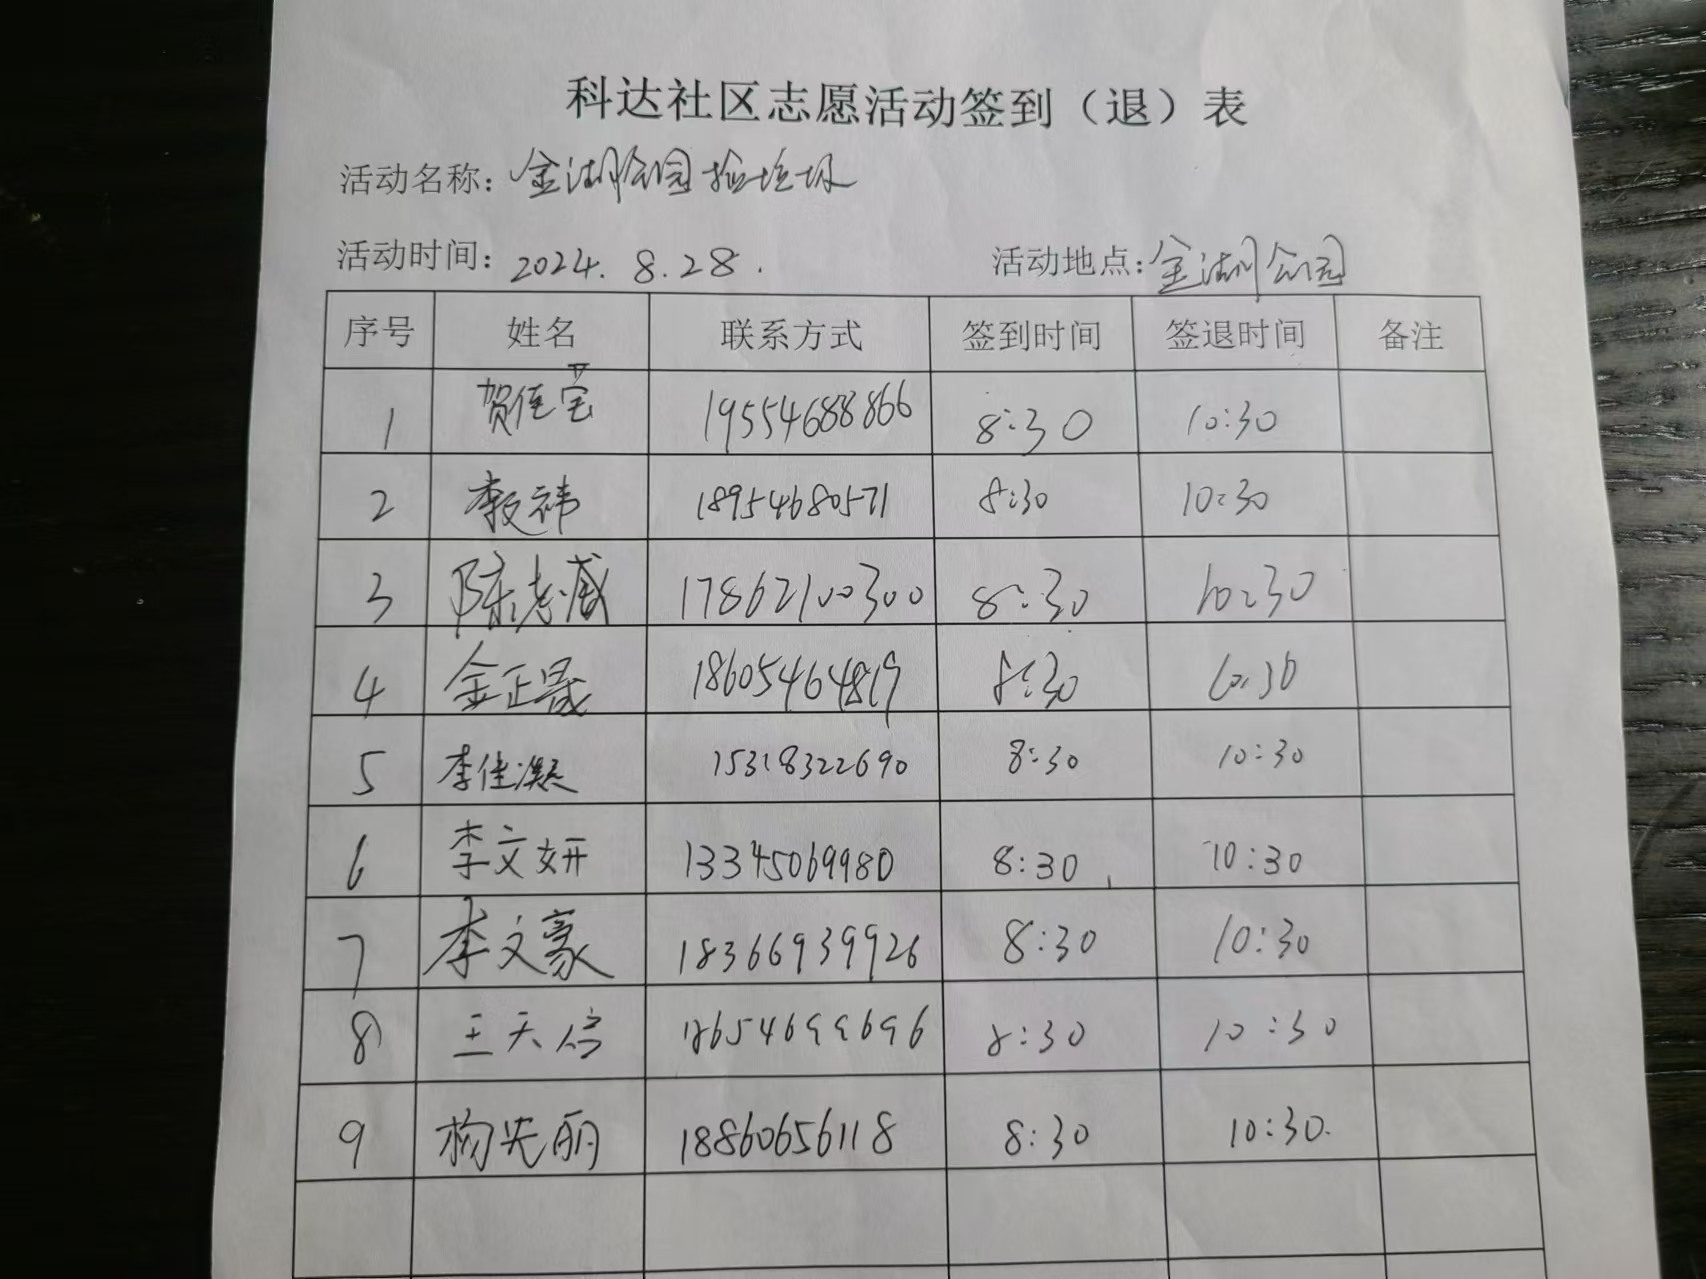 科达社区志愿活动签到（退）表
活动名称：金湖公园捡垃圾
活动时间：2024.8.28. 活动地点：金湖公园
序号 姓名 联系方式 签到时间 签退时间 备注
1 贺佳莹 19554688866 8:30 10:30
2 18954680571 8:30 10:30
3 陈志威 17862100300 8:30 10:30
4 金正晟 18605464819 8:30 10:30
5 李佳凝 15318322690 8:30 10:30
6 李文妍 13345069980 8:30 10:30
7 李文豪 18366939926 8:30 10:30
8 王天信 18654699696 8:30 10:30
9 杨先丽 18860656118 8:30 10:30.